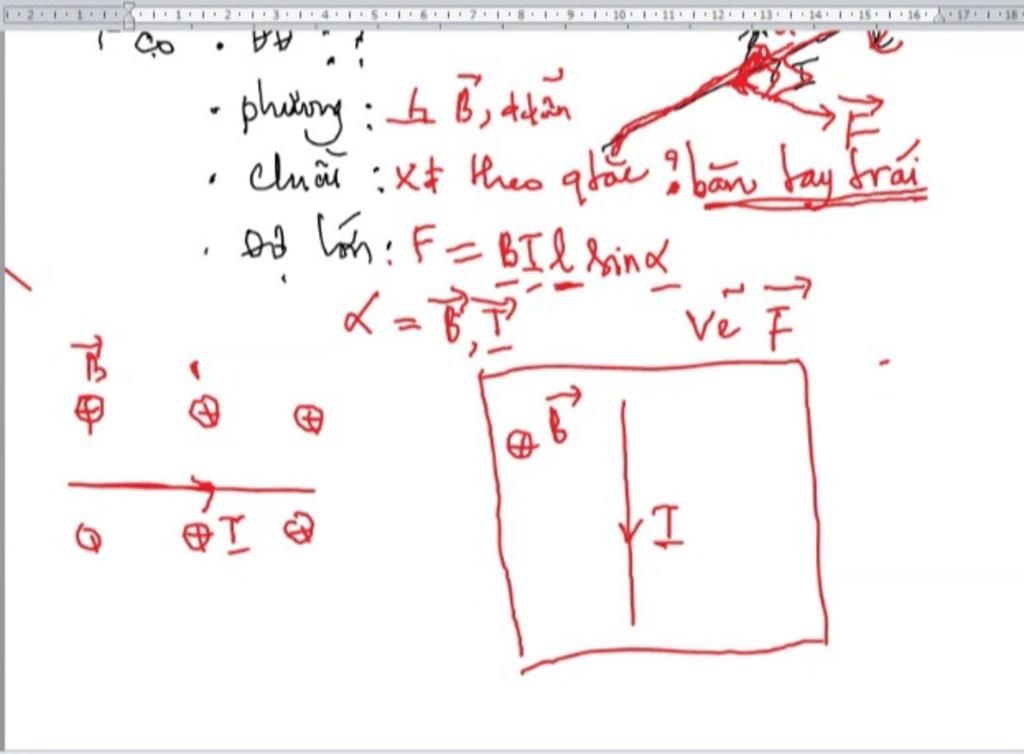 2 1 1 2 3 4 5 6 7 8 9 10 11 12 13 14 15 16 17 18
• phương : ⊥ B⃗, d dẫn
F⃗
• chiều : xđ theo qtắc : bàn tay trái
• Độ lớn : F = BIl sinα
α = B⃗, I⃗
Vẽ F⃗
B⃗
I
B⃗
I